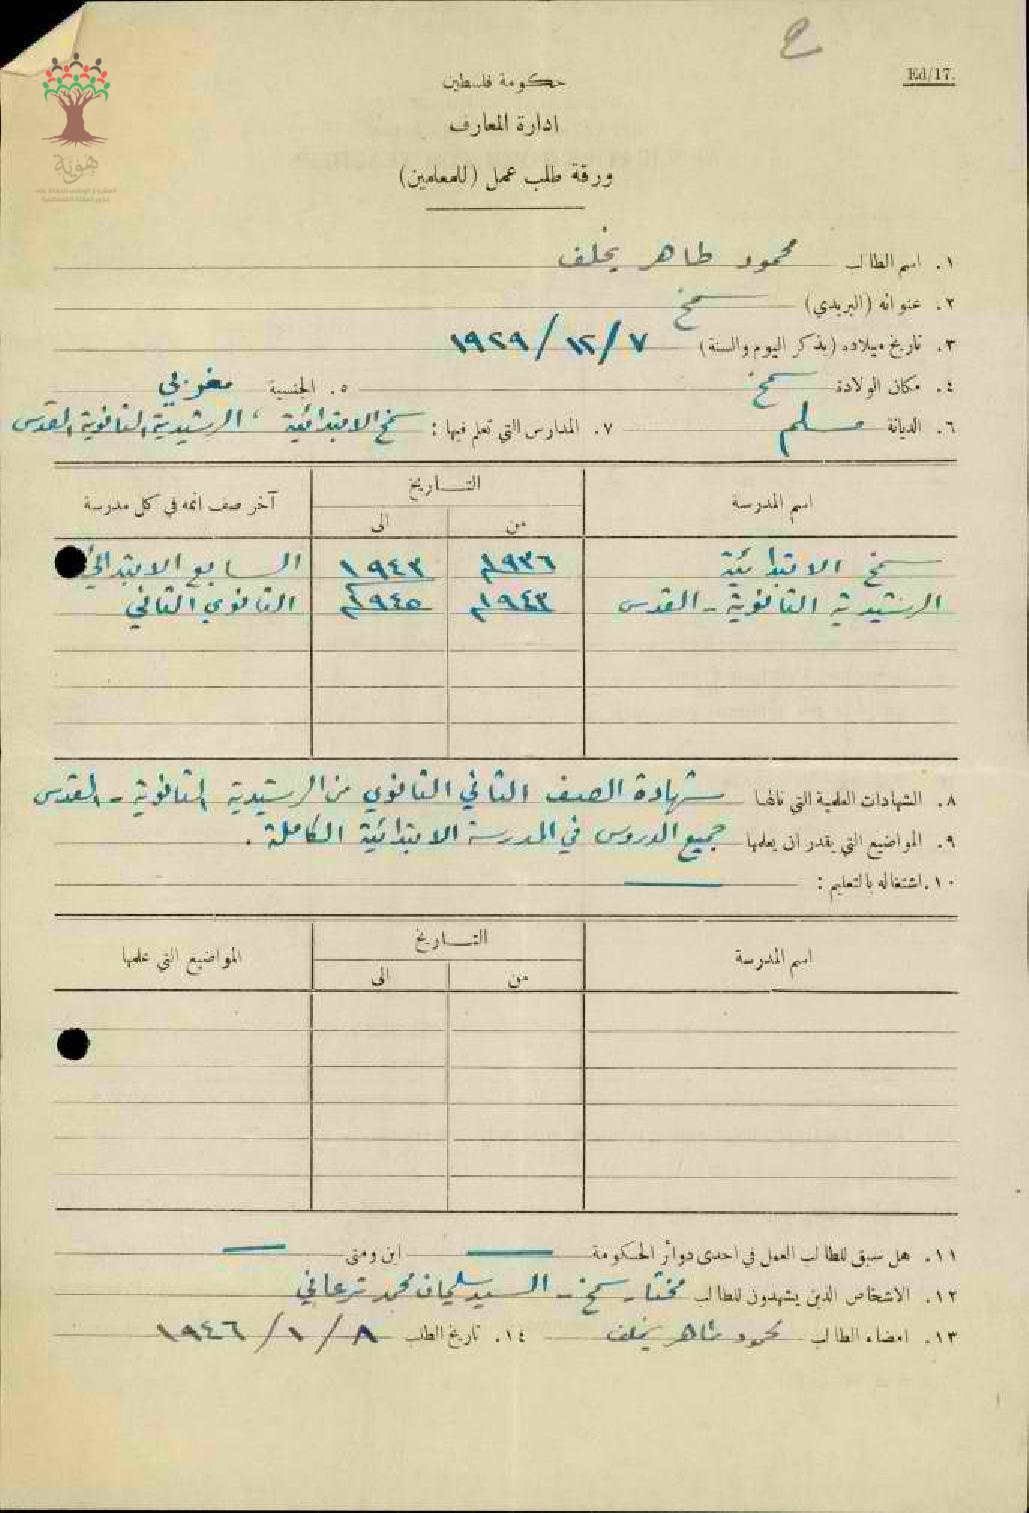 Ed/17.
حكومة فلسطين
ادارة المعارف
ورقة طلب عمل (للمعلمين)
هوية
المشروع الوطني للحفاظ على
جذور العائلة الفلسطينية
١. اسم الطالب محمود طاهر يخلف
٢. عنوانه (البريدي) سمخ
٣. تاريخ ميلاده (بذكر اليوم والسنة) ٧/١٢/١٩٢٩
٤. مكان الولادة سمخ ٥. الجنسية مغربي
٦. الديانة مسلم ٧. المدارس التي تعلم فيها: سمخ الابتدائية، الرشيدية الثانوية القدس
اسم المدرسة التاريخ آخر صف اتمه في كل مدرسة
من الى
سمخ الابتدائية ١٩٣٦م ١٩٤٣ السابع الابتدائي
الرشيدية الثانوية - القدس ١٩٤٣م ١٩٤٥م الثانوي الثاني
٨. الشهادات العلمية التي نالها شهادة الصف الثاني الثانوي من الرشيدية الثانوية - القدس
٩. المواضيع التي يقدر ان يعلمها جميع الدروس في المدرسة الابتدائية الكاملة.
١٠. اشتغاله بالتعليم:
اسم المدرسة التاريخ المواضيع التي علمها
من الى
١١. هل سبق للطالب العمل في احدى دوائر الحكومة اين ومتى
١٢. الاشخاص الذين يشهدون للطالب مختار سمخ - السيد سليمان محمد ترعاني
١٣. امضاء الطالب محمود طاهر يخلف ١٤. تاريخ الطلب ٨/١/١٩٤٦